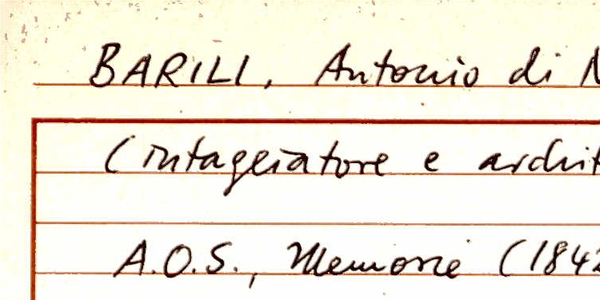 BARILI, Antonio di N
(intageiatore e archit
A.O.S., Memorie (1842